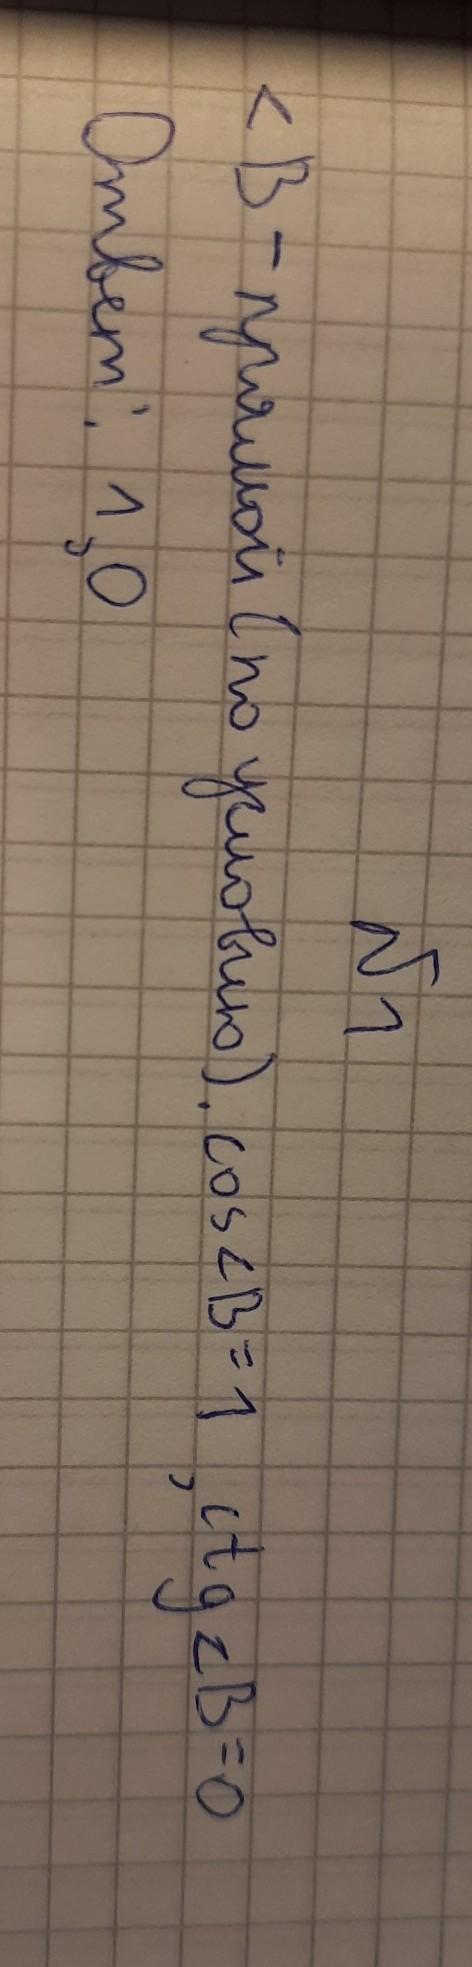 №1
<B - прямой (по условию). cos<B=1, ctg<B=0
Ответ: 1,0